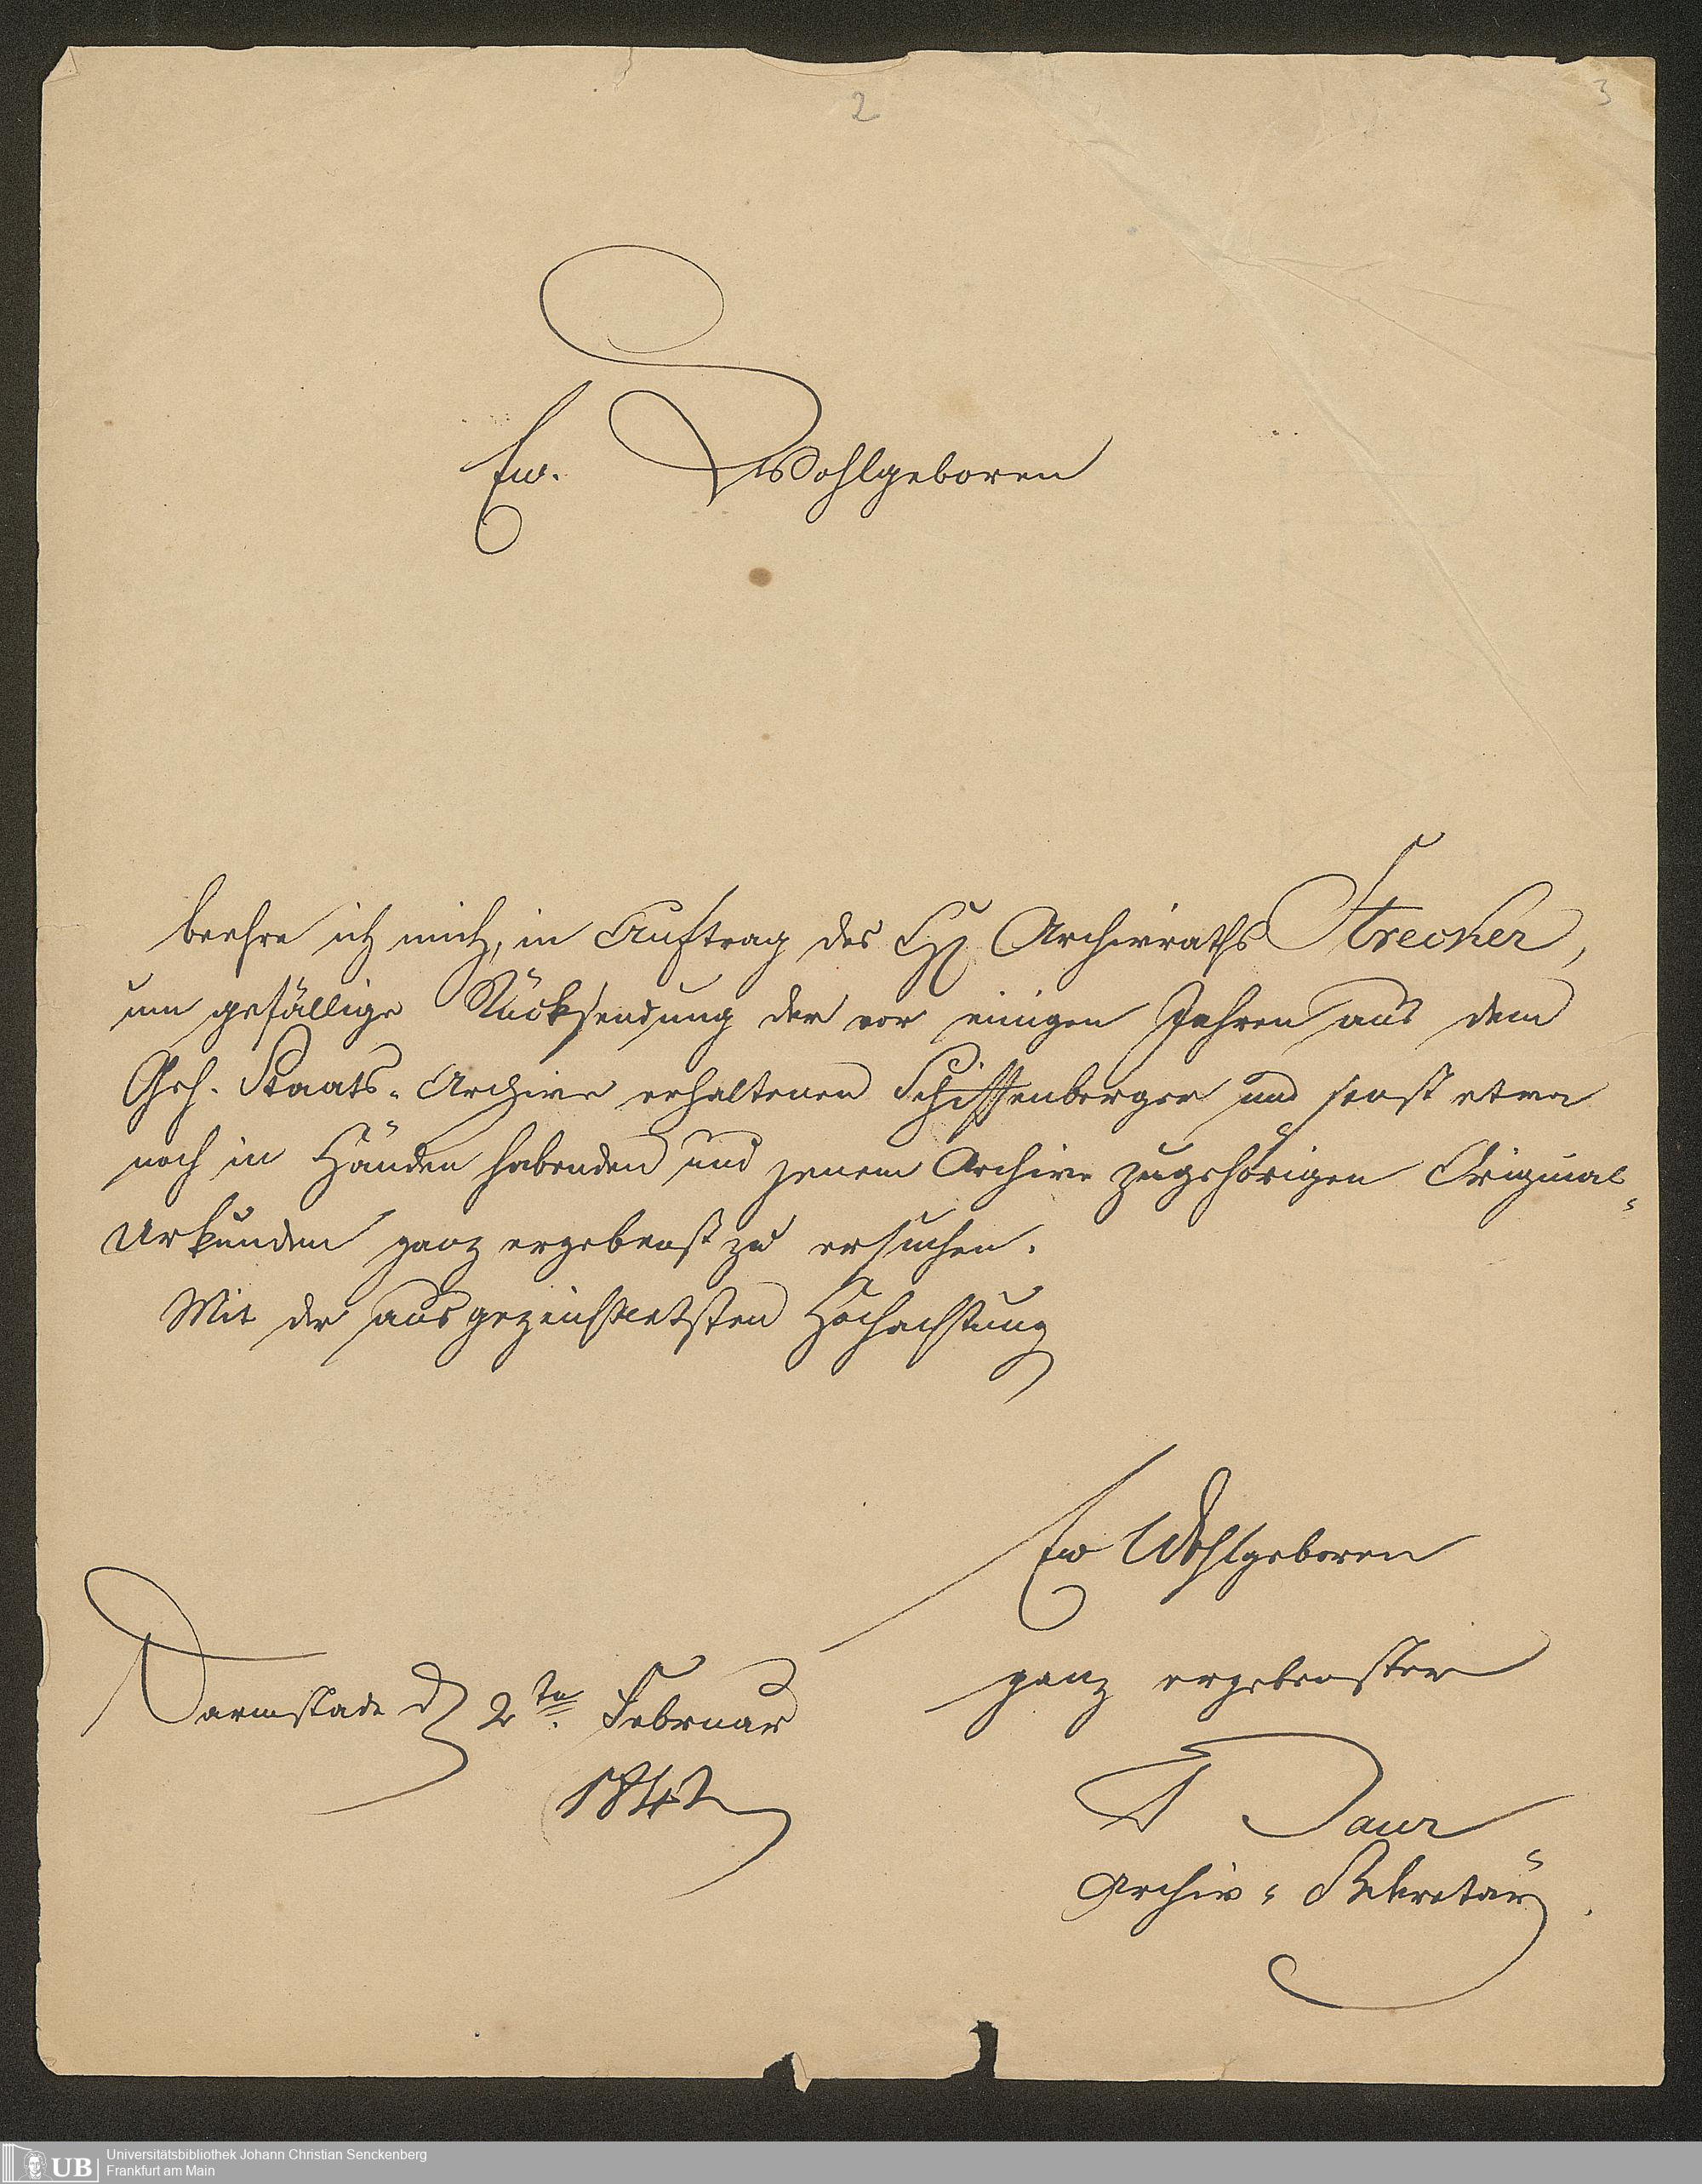 2
3
Ew. Wohlgeboren
beehre ich mich, in Auftrag des H. Archivraths Strecker,
um gefällige Rücksendung der vor einigen Jahren aus dem
Geh. Staats-Archive erhaltenen Schiffenberger und sonst etwa
noch in Händen habenden und jenem Archive zugehörigen Original-
Urkunden ganz ergebenst zu ersuchen.
Mit der ausgezeichnetsten Hochachtung
Ew Wohlgeboren
ganz ergebenster
Darmstadt d 2ten Februar
1842
Baur
Archiv-Sekretär.
UB
Universitätsbibliothek Johann Christian Senckenberg
Frankfurt am Main